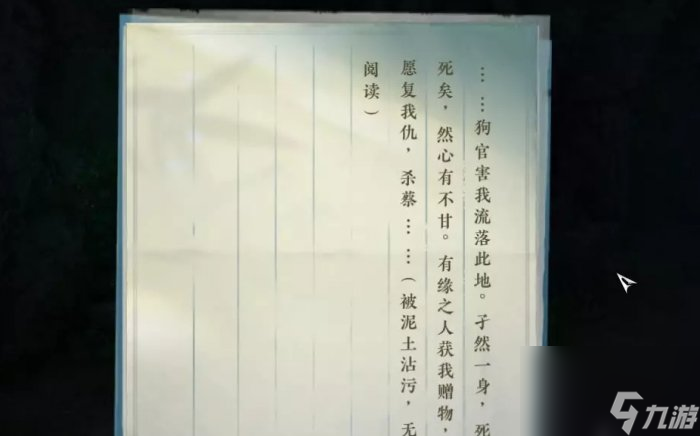 ……狗官害我流落此地。孑然一身，死
死矣，然心有不甘。有缘之人获我赠物，
愿复我仇，杀蔡……（被泥土沾污，无
阅读）
九游